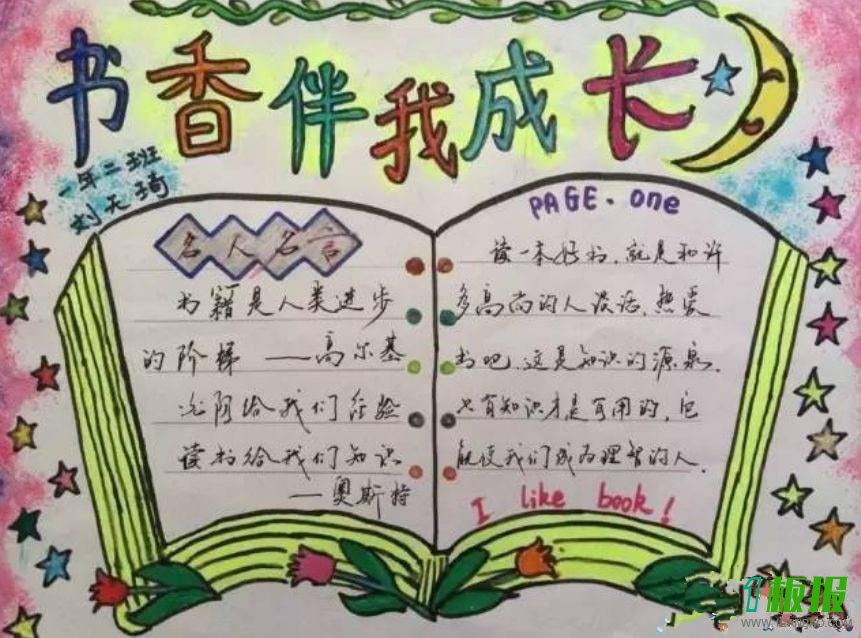 书香伴我成长
一年二班
刘天琦
名人名言
书籍是人类进步
的阶梯——高尔基
光阴给我们经验
读书给我们知识
——奥斯特
PAGE.one
读一本好书,就是和许
多高尚的人谈话,热爱
书吧,这是知识的源泉.
只有知识才是有用的,它
能使我们成为理智的人.
I like book!
板报